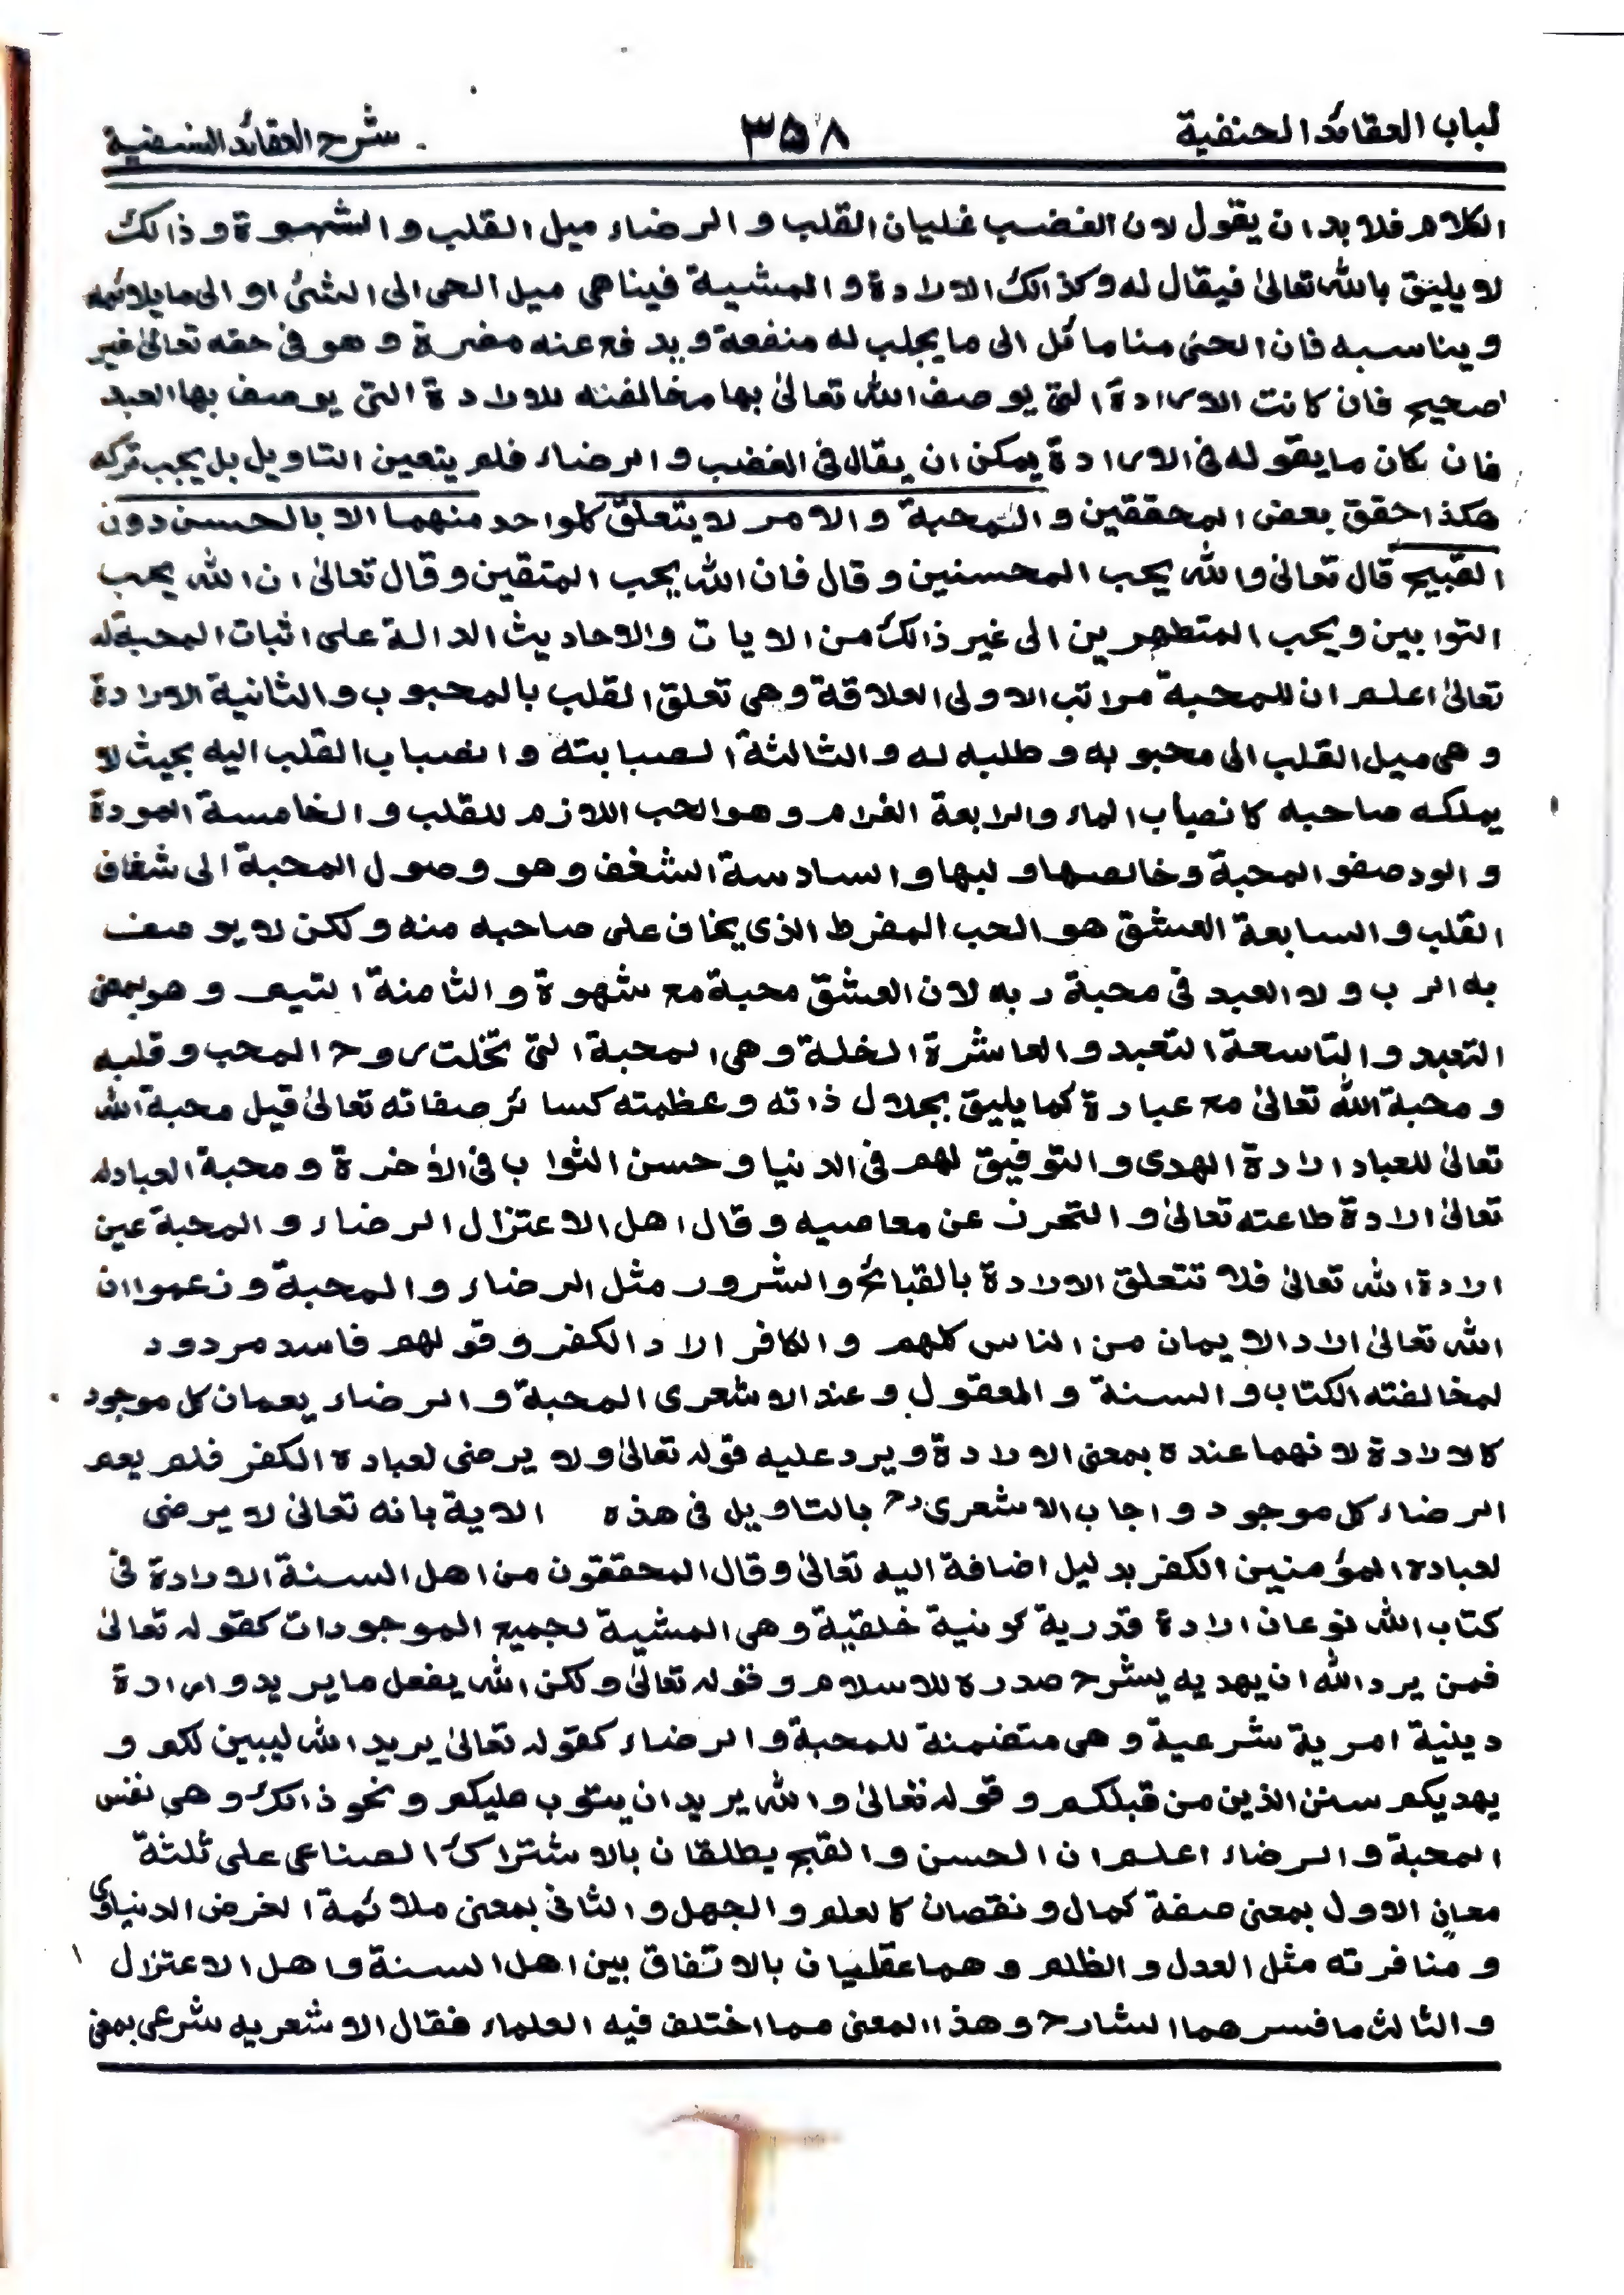 لباب العقائد الحنفية ٣٥٨ شرح العقائد النسفية
الكلام فلا بد ان يقول لان الغضب غليان القلب و الرضاء ميل القلب و الشهوة و ذالك
لا يليق بالله تعالىٰ فيقال له وكذالك الارادة و المشية فينا هى ميل الحى الى الشئ او الى ما يلائمه
و يناسبه فان الحى منا مائل الى ما يجلب له منفعة و يدفع عنه مضرة و هو فى حقه تعالىٰ غير
صحيح فان كانت الارادة التى يوصف الله تعالىٰ بها مخالفته للارادة التى يوصف بها العبد
فان كان ما يقوله فى الارادة يمكن ان يقال فى الغضب و الرضاء فلم يتعين التاويل بل يجب تركه
هكذا حقق بعض المحققين و المحبة و الامر لا يتعلق كلواحد منهما الا بالحسن دون
القبيح قال تعالىٰ والله يحب المحسنين و قال فان الله يحب المتقين و قال تعالىٰ ان الله يحب
التوابين و يحب المتطهرين الى غير ذالك من الايات والاحاديث الدالة على اثبات المحبة له
تعالىٰ اعلم ان للمحبة مراتب الاولى العلاقة وهى تعلق القلب بالمحبوب و الثانية الارادة
و هى ميل القلب الى محبوبه و طلبه له و الثالثة الصبابته و انصباب القلب اليه بحيث لا
يملكه صاحبه كانصباب الماء والرابعة الغرام و هو الحب اللازم للقلب و الخامسة المودة
و الود صفو المحبة و خالصها و لبها و السادسة الشغف و هو وصول المحبة الى شغاف
القلب و السابعة العشق هو الحب المفرط الذى يخاف على صاحبه منه و لكن لا يوصف
به الرب و لا العبد فى محبة ربه لان العشق محبة مع شهوة و الثامنة التيم و هو بمعنى
التعبد و التاسعة التعبد و العاشرة الخلة و هى المحبة التى تخلت روح المحب و قلبه
و محبة الله تعالىٰ مع عبارة كما يليق بجلال ذاته و عظمته كسائر صفاته تعالىٰ قيل محبة الله
تعالىٰ للعباد ارادة الهدى و التوفيق لهم فى الدنيا و حسن الثواب فى الأخرة و محبة العباد له
تعالىٰ ارادة طاعته تعالىٰ و التحرز عن معاصيه و قال اهل الاعتزال الرضاء و المحبة عين
ارادة الله تعالىٰ فلا تتعلق الارادة بالقبائح و الشرور مثل الرضاء و المحبة و زعموا ان
الله تعالىٰ اراد الايمان من الناس كلهم و الكافر اراد الكفر و قولهم فاسد مردود
لمخالفته الكتاب و السنة و المعقول و عند الاشعرى المحبة و الرضاء يعمان كل موجود
كالارادة لانهما عنده بمعنى الارادة و يرد عليه قوله تعالىٰ و لا يرضى لعباده الكفر فلم يعم
الرضاء كل موجود و اجاب الاشعرىؒ بالتاويل فى هذه الاية بانه تعالىٰ لا يرضى
لعباده المؤمنين الكفر بدليل اضافة اليه تعالىٰ و قال المحققون من اهل السنة الارادة فى
كتاب الله نوعان ارادة قدرية كونية خلقية و هى المشية لجميع الموجودات كقوله تعالىٰ
فمن يرد الله ان يهديه يشرح صدره للاسلام و قوله تعالىٰ و لكن الله يفعل ما يريد و ارادة
دينية امرية شرعية و هى متضمنة للمحبة و الرضاء كقوله تعالىٰ يريد الله ليبين لكم و
يهديكم سنن الذين من قبلكم و قوله تعالىٰ و الله يريد ان يتوب عليكم و نحو ذالك و هى نفس
المحبة و الرضاء اعلم ان الحسن و القبح يطلقان بالاشتراك الصناعى على ثلثة
معانٍ الاول بمعنى صفة كمال و نقصان كالعلم و الجهل و الثانى بمعنى ملائمة الغرض الدنياوى
و منافرته مثل العدل و الظلم و هما عقليان بالاتفاق بين اهل السنة و اهل الاعتزال
و الثالث ما فسرهما الشارح و هذا المعنى مما اختلف فيه العلماء فقال الاشعريه شرعى بمعنى